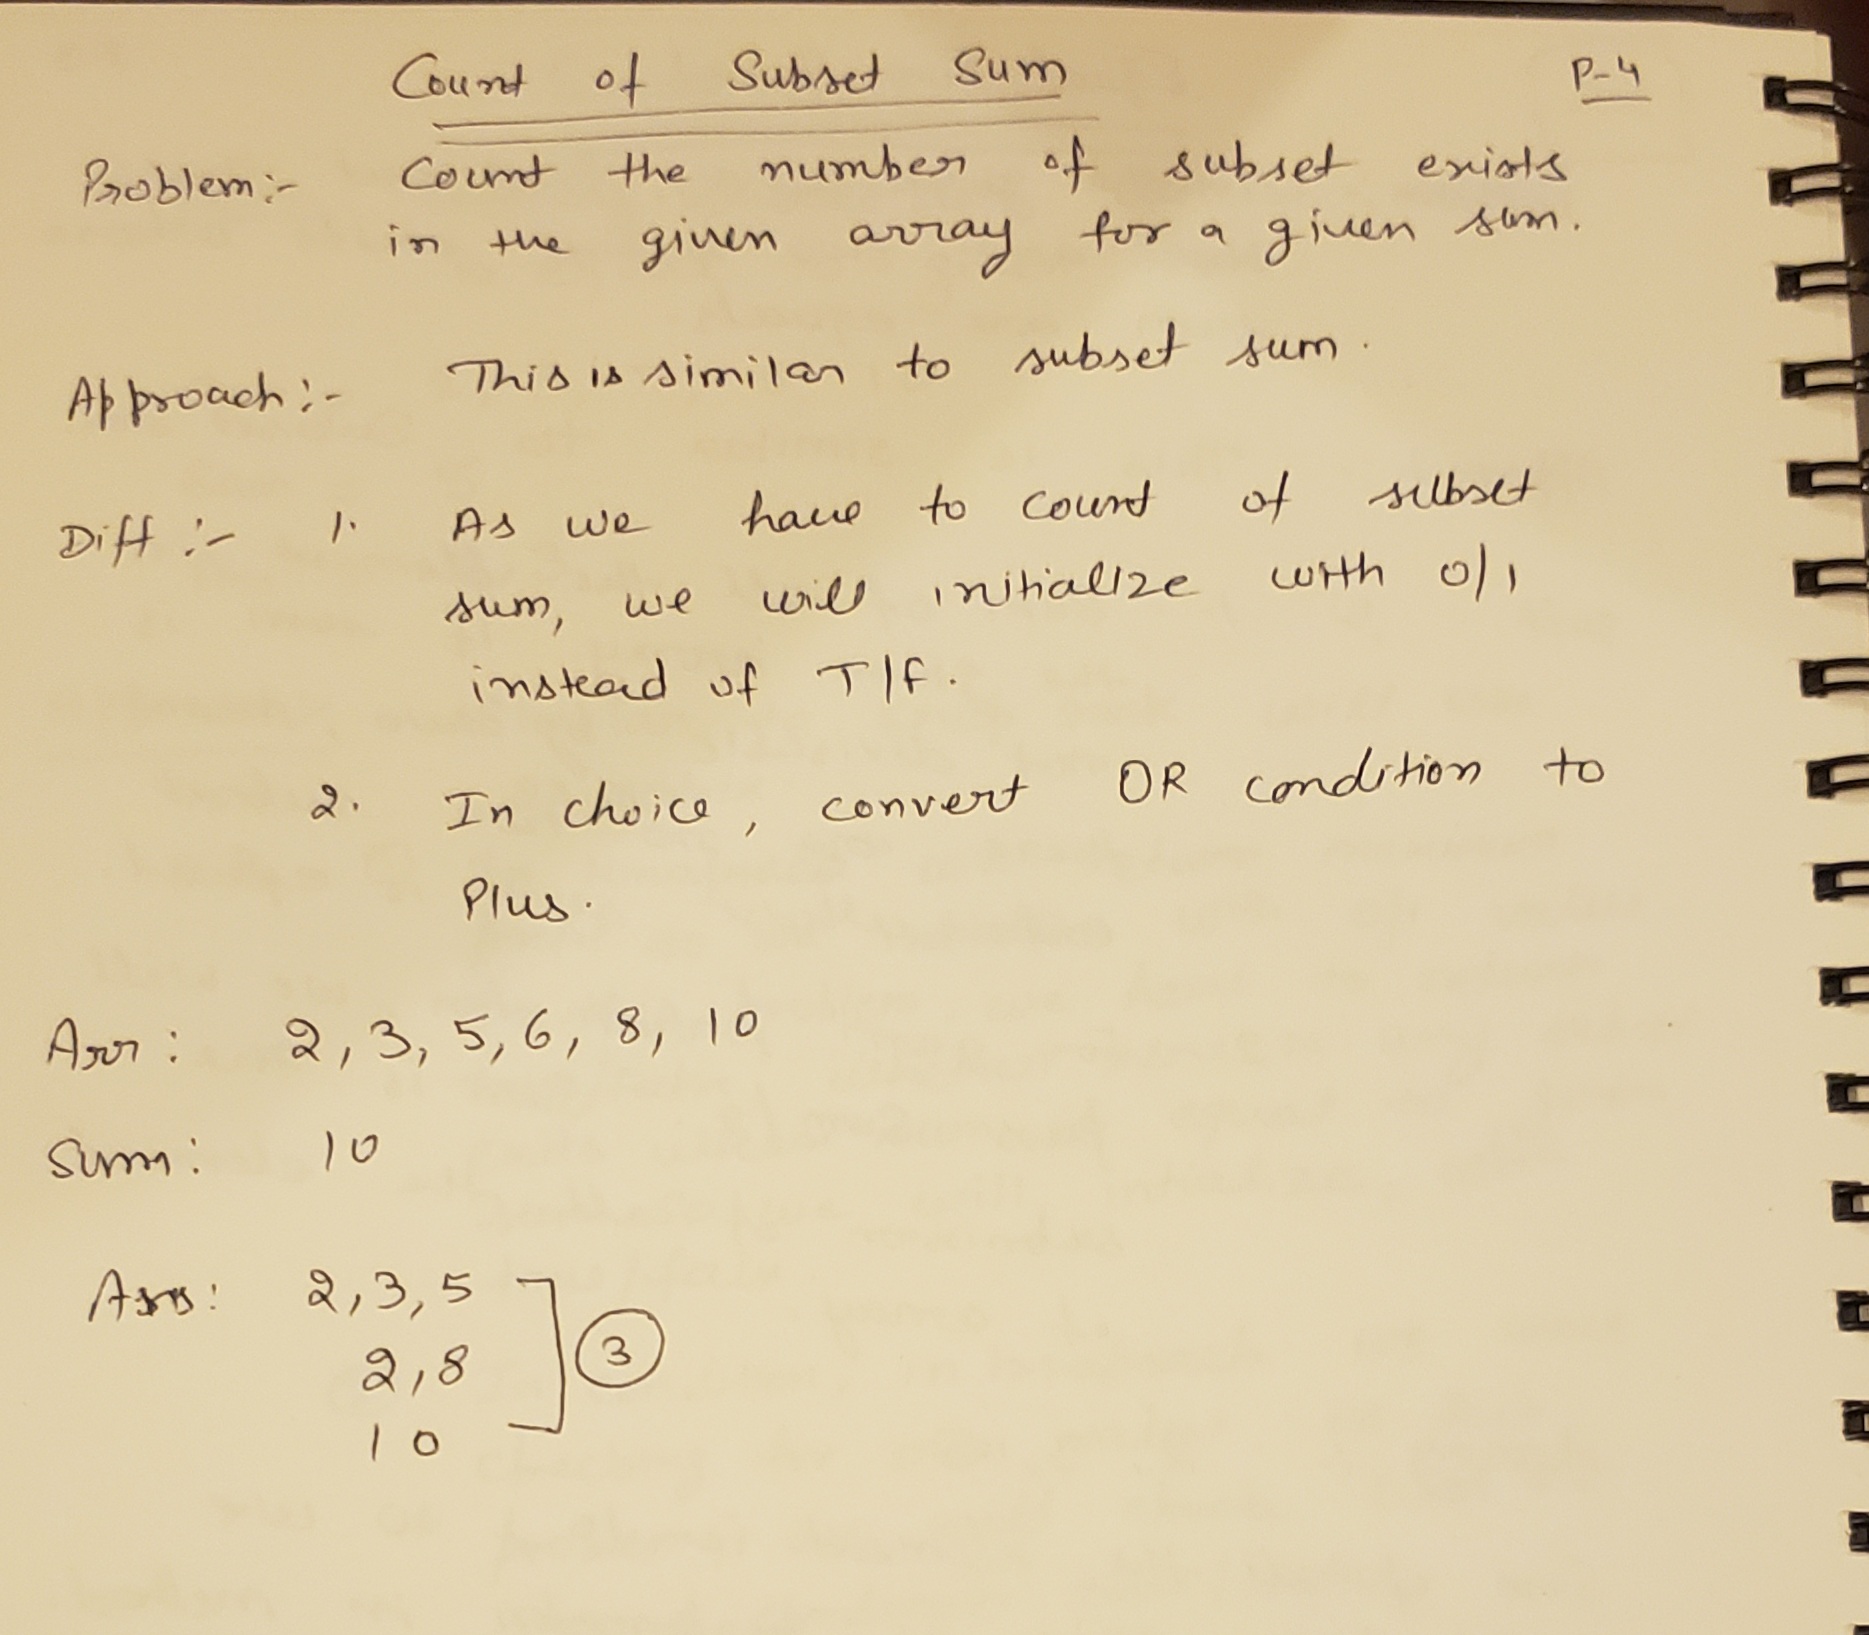 Count of Subset Sum P-4
Problem:- Count the number of subset exists
in the given array for a given sum.
Approach:- This is similar to subset sum.
Diff:- 1. As we have to count of subset
sum, we will initialize with 0/1
instead of T/F.
2. In choice, convert OR condition to
Plus.
Arr: 2, 3, 5, 6, 8, 10
Sum: 10
Ans: 2, 3, 5
2, 8 3
10